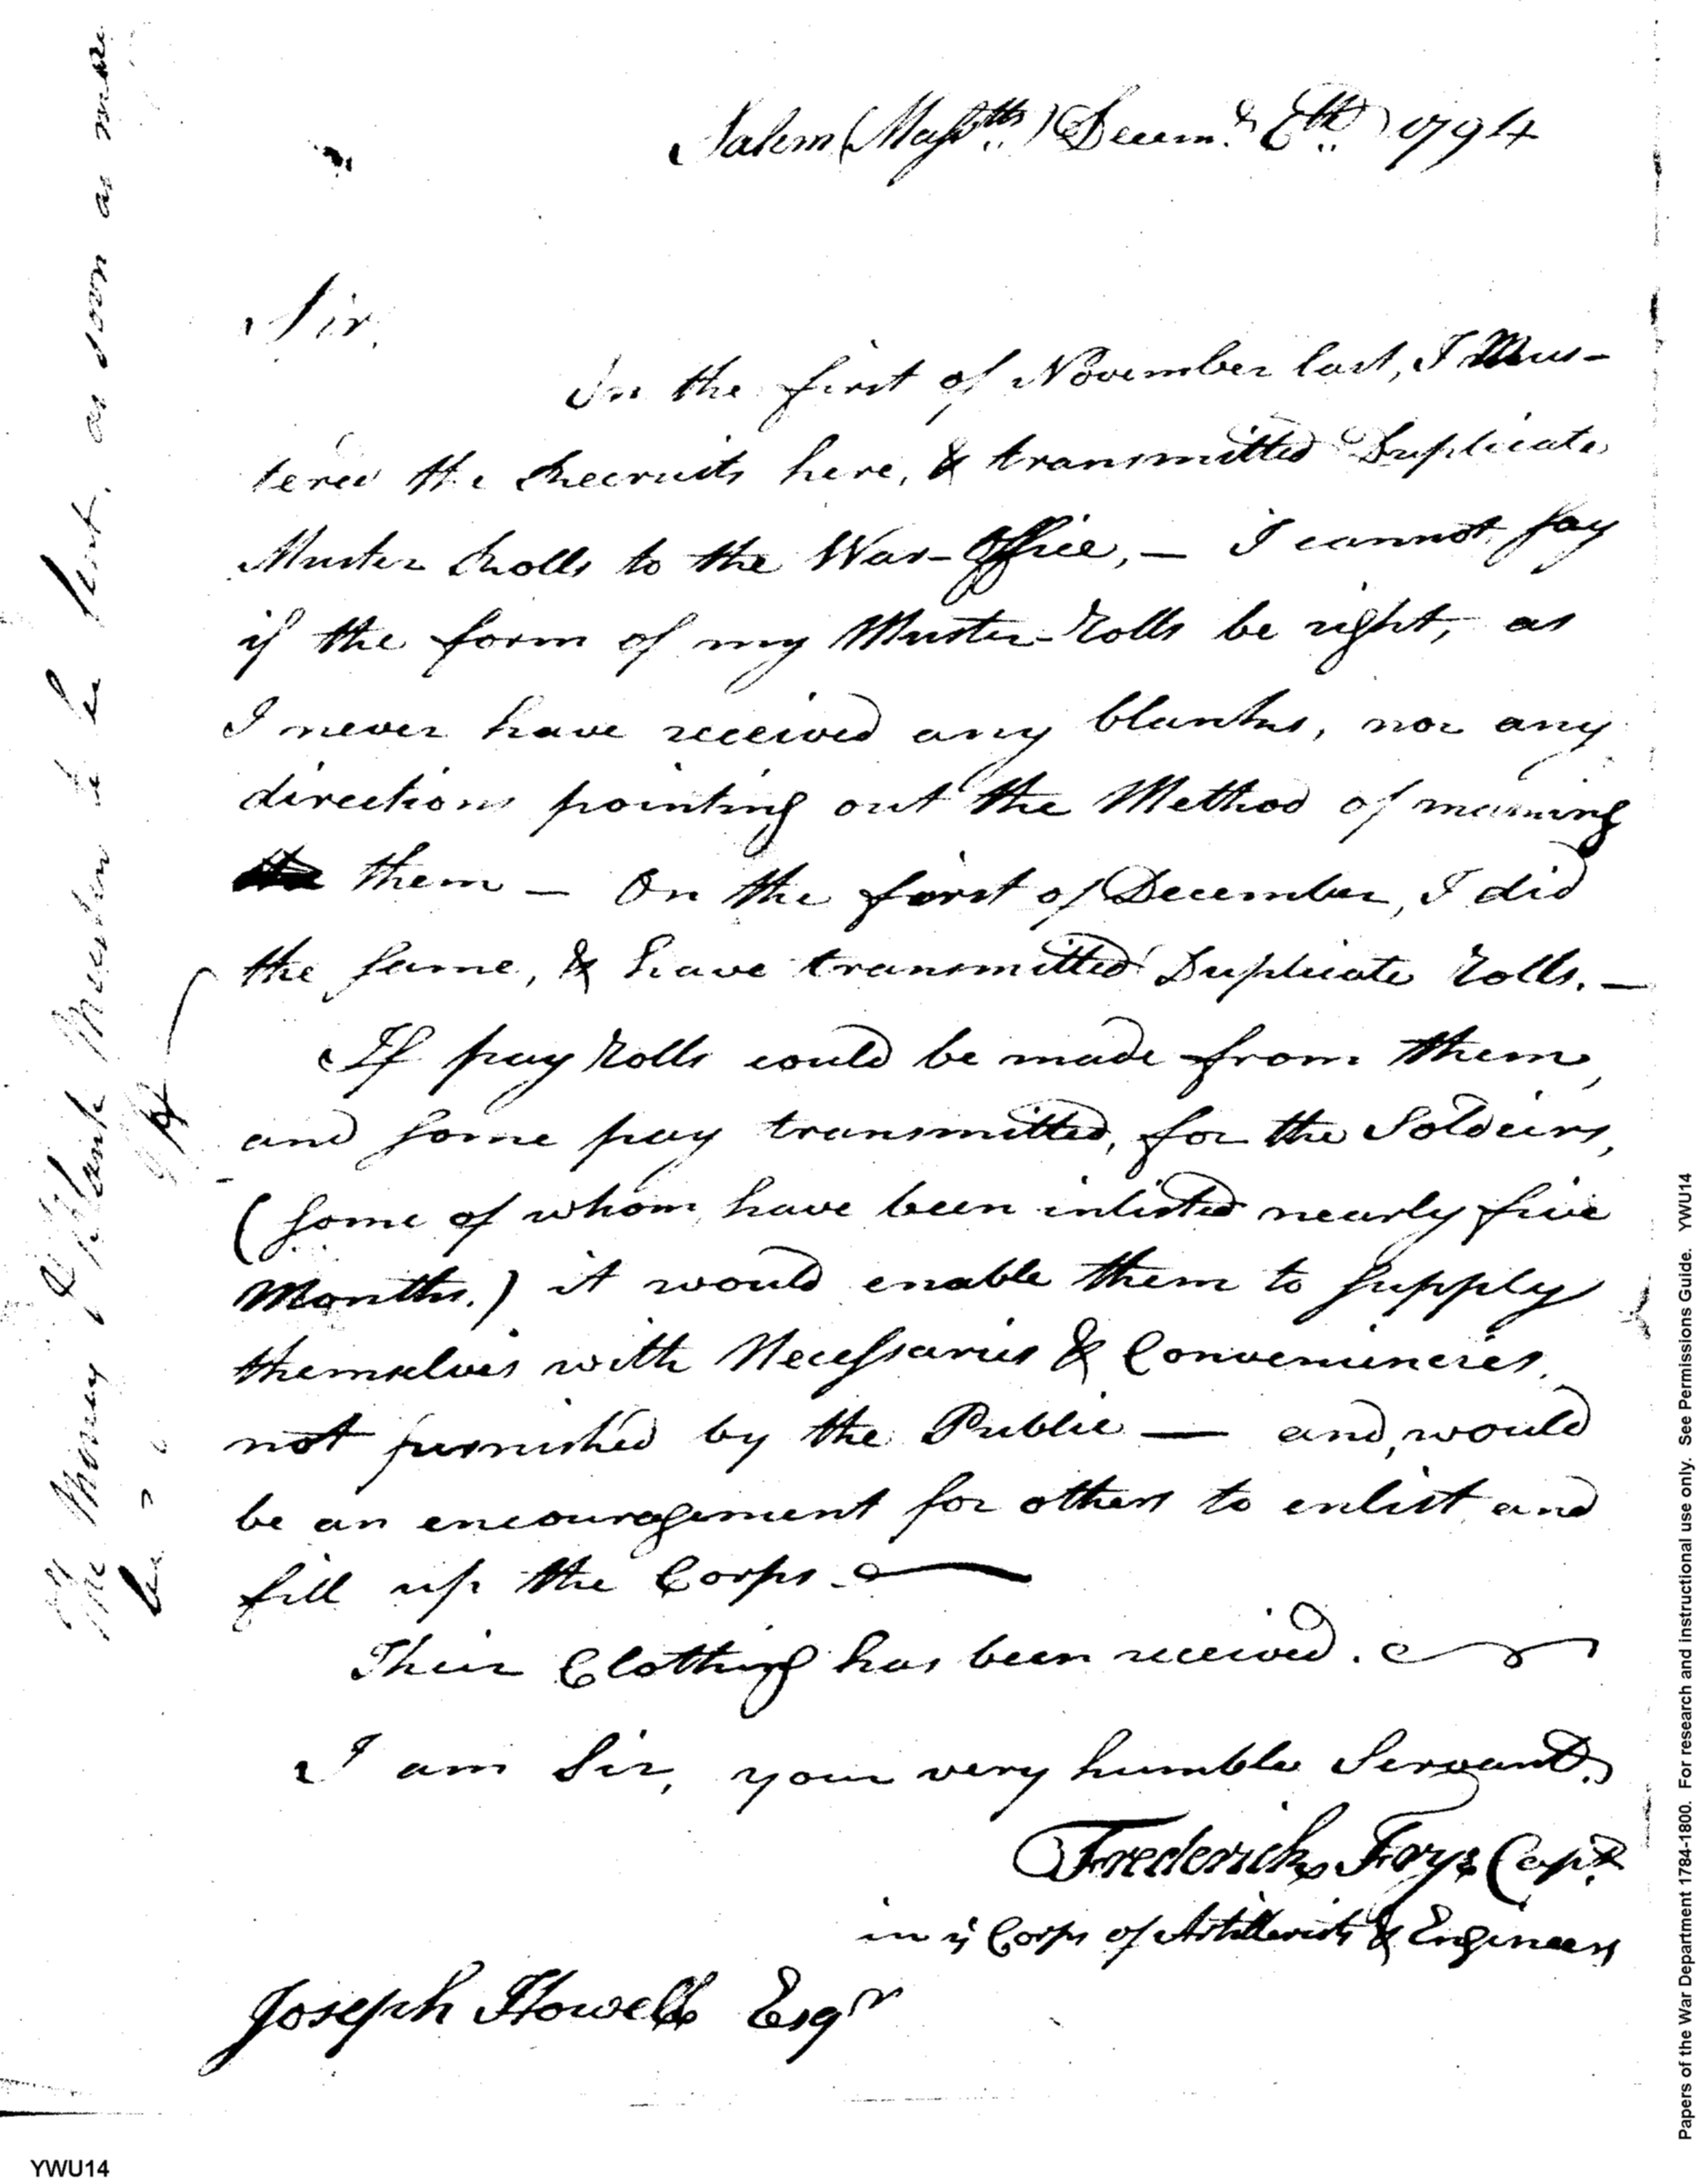 Salem (Masstts) Decemr 8th 1794
Sir,
On the first of November last, I Mus-
tered the Recruits here, & transmitted Duplicate
Muster Rolls to the War-Office, — I cannot say
if the form of my Muster-Rolls be right, as
I never have received any blanks, nor any
directions pointing out the Method of making
them — On the first of December, I did
the same, & have transmitted Duplicate Rolls. —
If pay Rolls could be made from them,
and some pay transmitted, for the Soldiers,
(some of whom have been inlisted nearly five
Months.) it would enable them to supply
themselves with Necessaries & Conveniencies,
not furnished by the Public — and, would
be an encouragement for others to enlist and
fill up the Corps. —
Their Clothing has been received.
I am Sir, your very humble Servant.
Frederick Frye Capt
in ye Corps of Artillerists & Engineers
Joseph Howell Esqr
The Money & blank Muster to be sent, as soon as may
be
YWU14
Papers of the War Department 1784-1800. For research and instructional use only. See Permissions Guide. YWU14